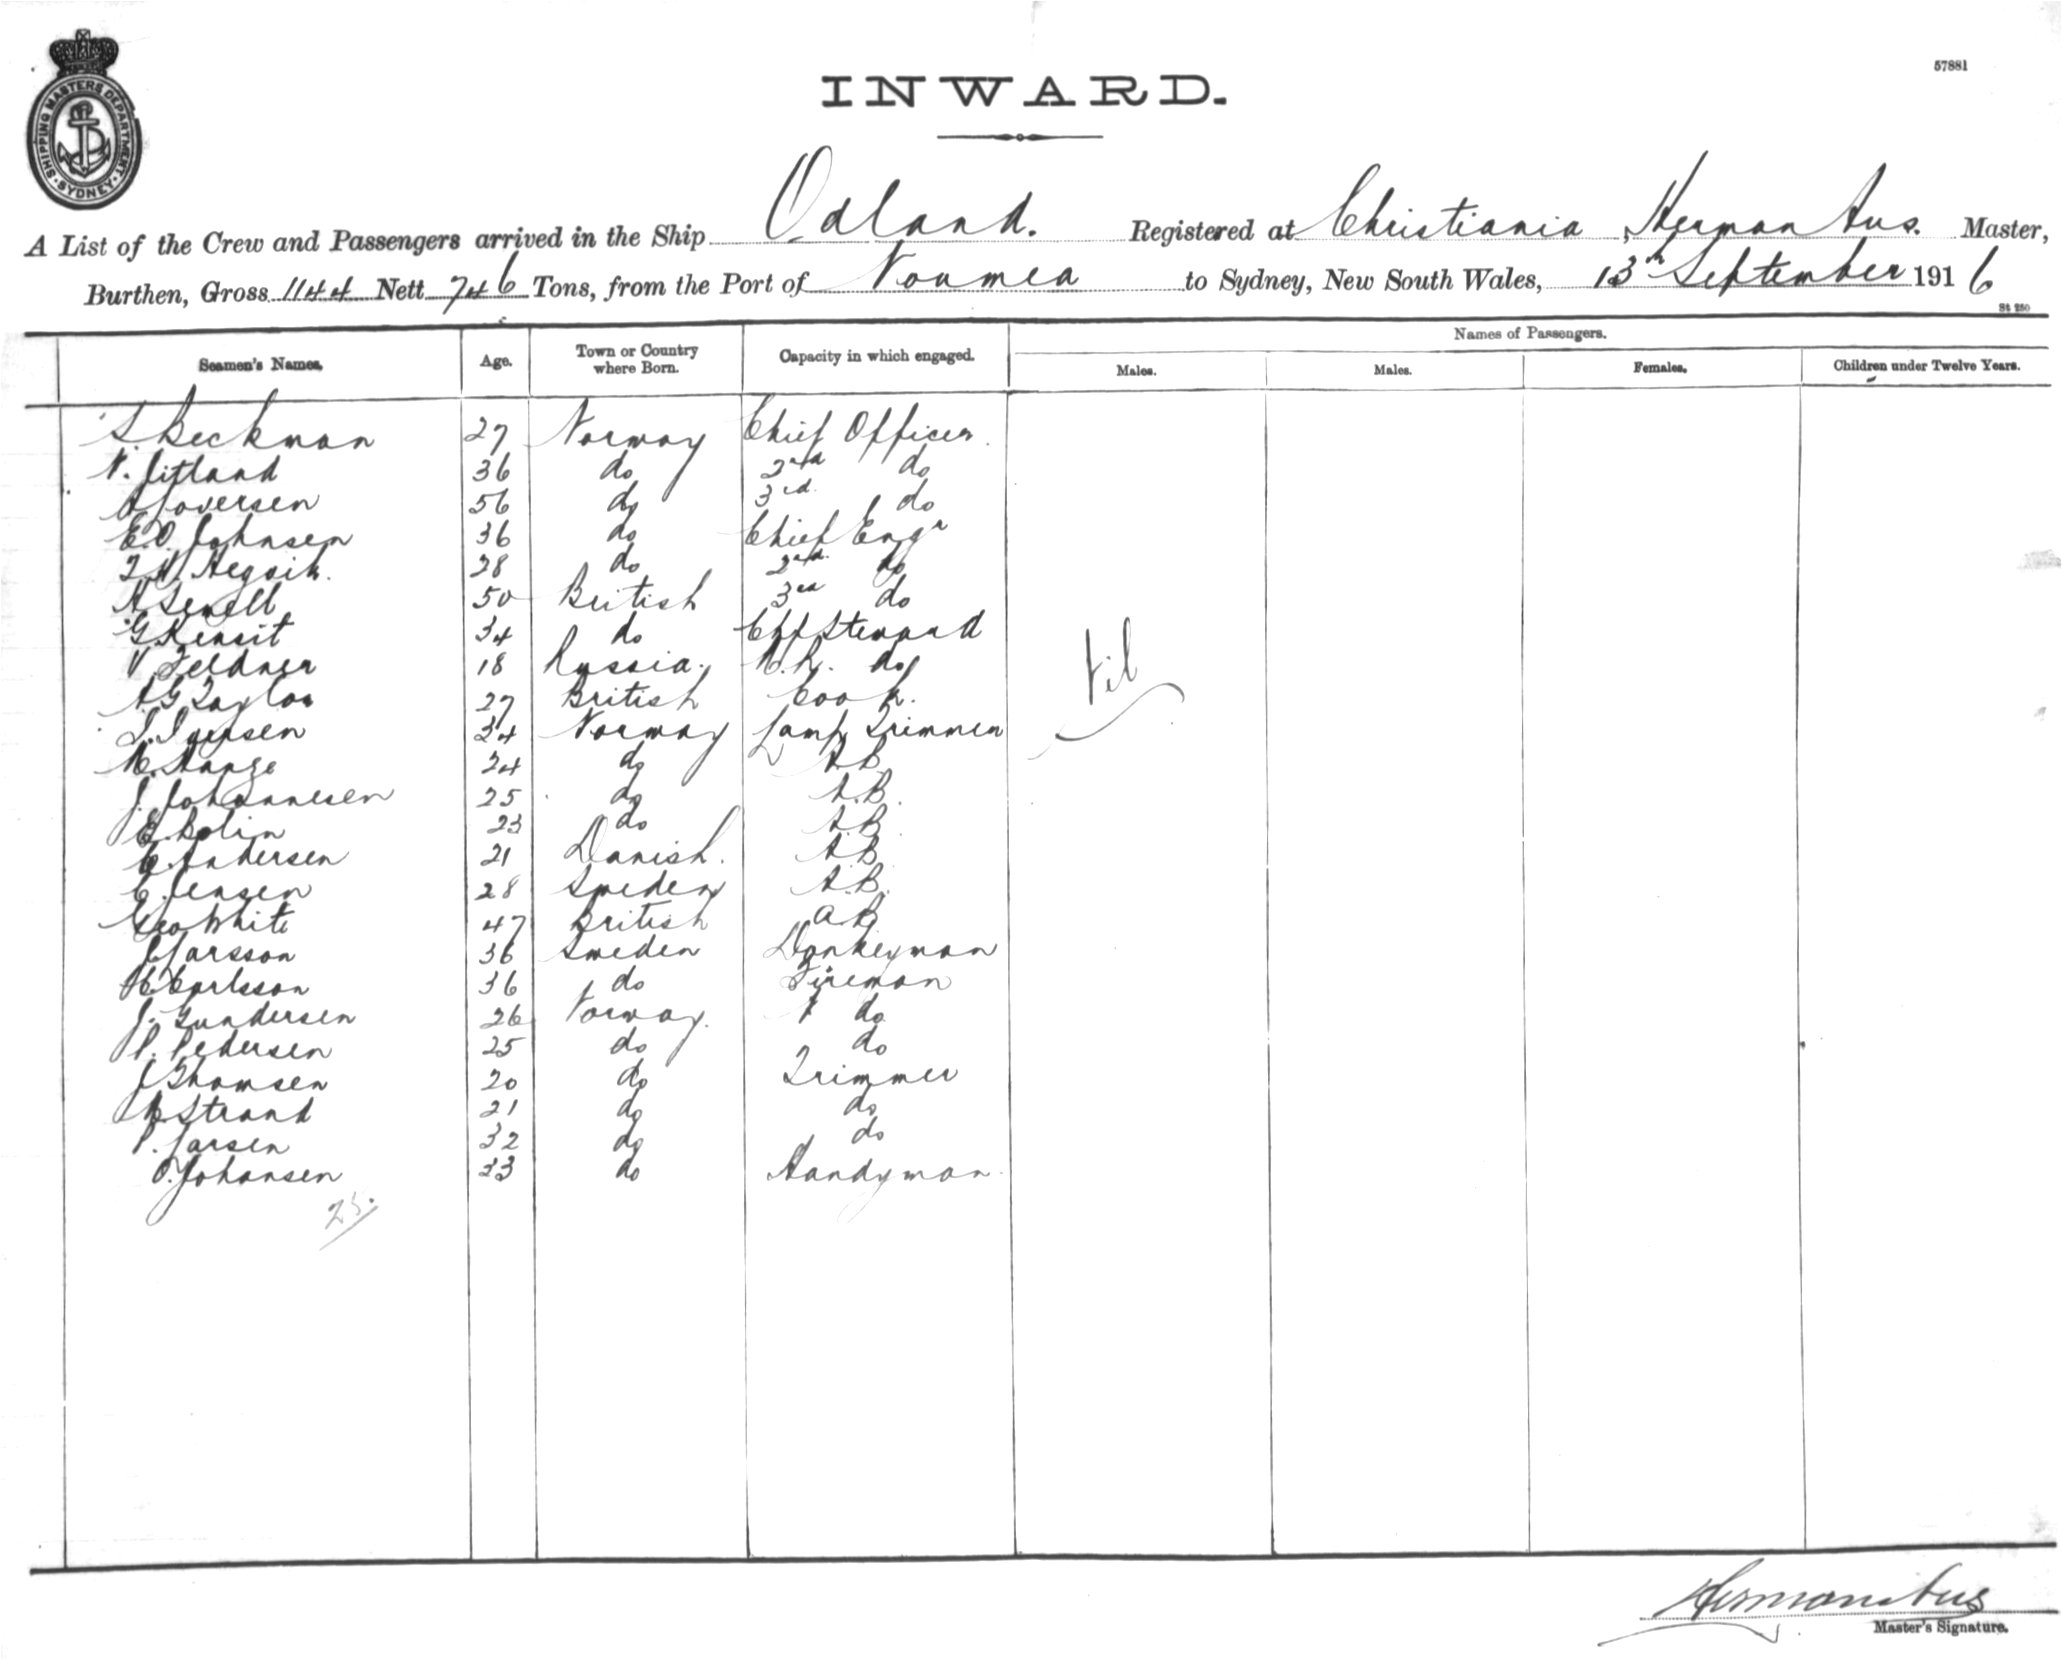 57881
INWARD.
SHIPPING MASTERS DEPARTMENT SYDNEY
A List of the Crew and Passengers arrived in the Ship Odland. Registered at Christiania, Herman Aus. Master,
Burthen, Gross 1144 Nett 746 Tons, from the Port of Noumea to Sydney, New South Wales, 13th September 1916
St 250
Names of Passengers.
Seamen's Names. Age. Town or Country where Born. Capacity in which engaged. Males. Males. Females. Children under Twelve Years.
S. Beckman 27 Norway Chief Officer.
N. Jitland 36 do 2nd do
56 do 3rd. do
E.O. Johnsen 36 do Chief Engr
28 do 2nd. do
A Sewell 50 British 3rd do
G Kensit 34 do Chf Steward
V Feldner 18 Russia. M.R. do
A G Taylor 27 British Cook.
34 Norway Lamp Trimmer
M. Hange 24 do A.B.
J. Johannesen 25 do A.B.
E. Bolin 23 do A.B.
C. Andersen 21 Danish. A.B.
E. Jensen 28 Sweden A.B.
Geo White 47 British A.B
Larsson 36 Sweden Donkeyman
Carlsson 36 do Fireman
J. Gundersen 26 Norway. do
P. Pedersen 25 do do
J Thomsen 20 do Trimmer
Strand 21 do do
P. Larsen 32 do do
O. Johansen 23 do Handyman.
25.
Nil
Herman Aus
Master's Signature.